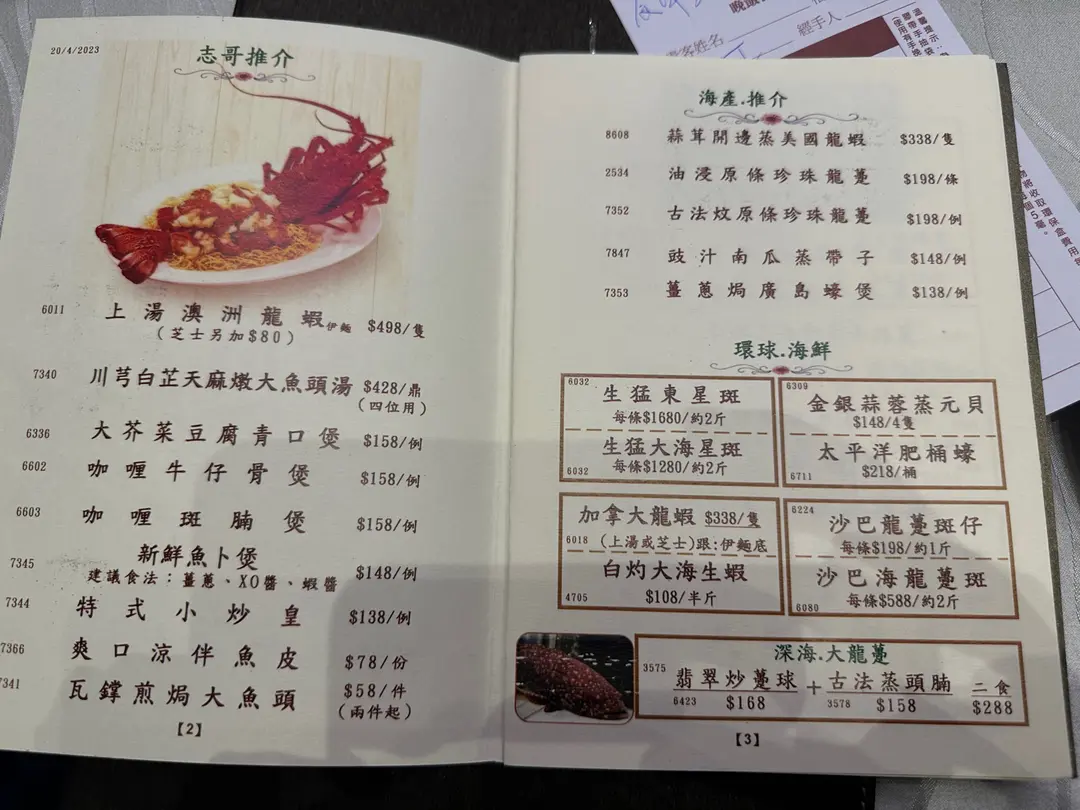 20/4/2023
志哥推介
6011 上湯澳洲龍蝦伊麵 $498/隻
(芝士另加$80)
7340 川芎白芷天麻燉大魚頭湯 $428/鼎
(四位用)
6336 大芥菜豆腐青口煲 $158/例
6602 咖喱牛仔骨煲 $158/例
6603 咖喱斑腩煲 $158/例
7345 新鮮魚卜煲 $148/例
建議食法：薑蔥、XO醬、蝦醬
7344 特式小炒皇 $138/例
7366 爽口涼伴魚皮 $78/份
7341 瓦鐣煎焗大魚頭 $58/件
(兩件起)
【2】
海產.推介
8608 蒜茸開邊蒸美國龍蝦 $338/隻
2534 油浸原條珍珠龍躉 $198/條
7352 古法炆原條珍珠龍躉 $198/例
7847 豉汁南瓜蒸帶子 $148/例
7353 薑蔥焗廣島蠔煲 $138/例
環球.海鮮
6032 生猛東星斑
每條$1680/約2斤
生猛大海星斑
6032 每條$1280/約2斤
6309 金銀蒜蓉蒸元貝
$148/4隻
太平洋肥桶蠔
6711 $218/桶
加拿大龍蝦 $338/隻
6018 (上湯或芝士)跟:伊麵底
白灼大海生蝦
4705 $108/半斤
6224 沙巴龍躉斑仔
每條$198/約1斤
沙巴海龍躉斑
6080 每條$588/約2斤
深海.大龍躉
3575 翡翠炒躉球+古法蒸頭腩 二食
6423 $168 3578 $158 $288
【3】
經手人
客姓名